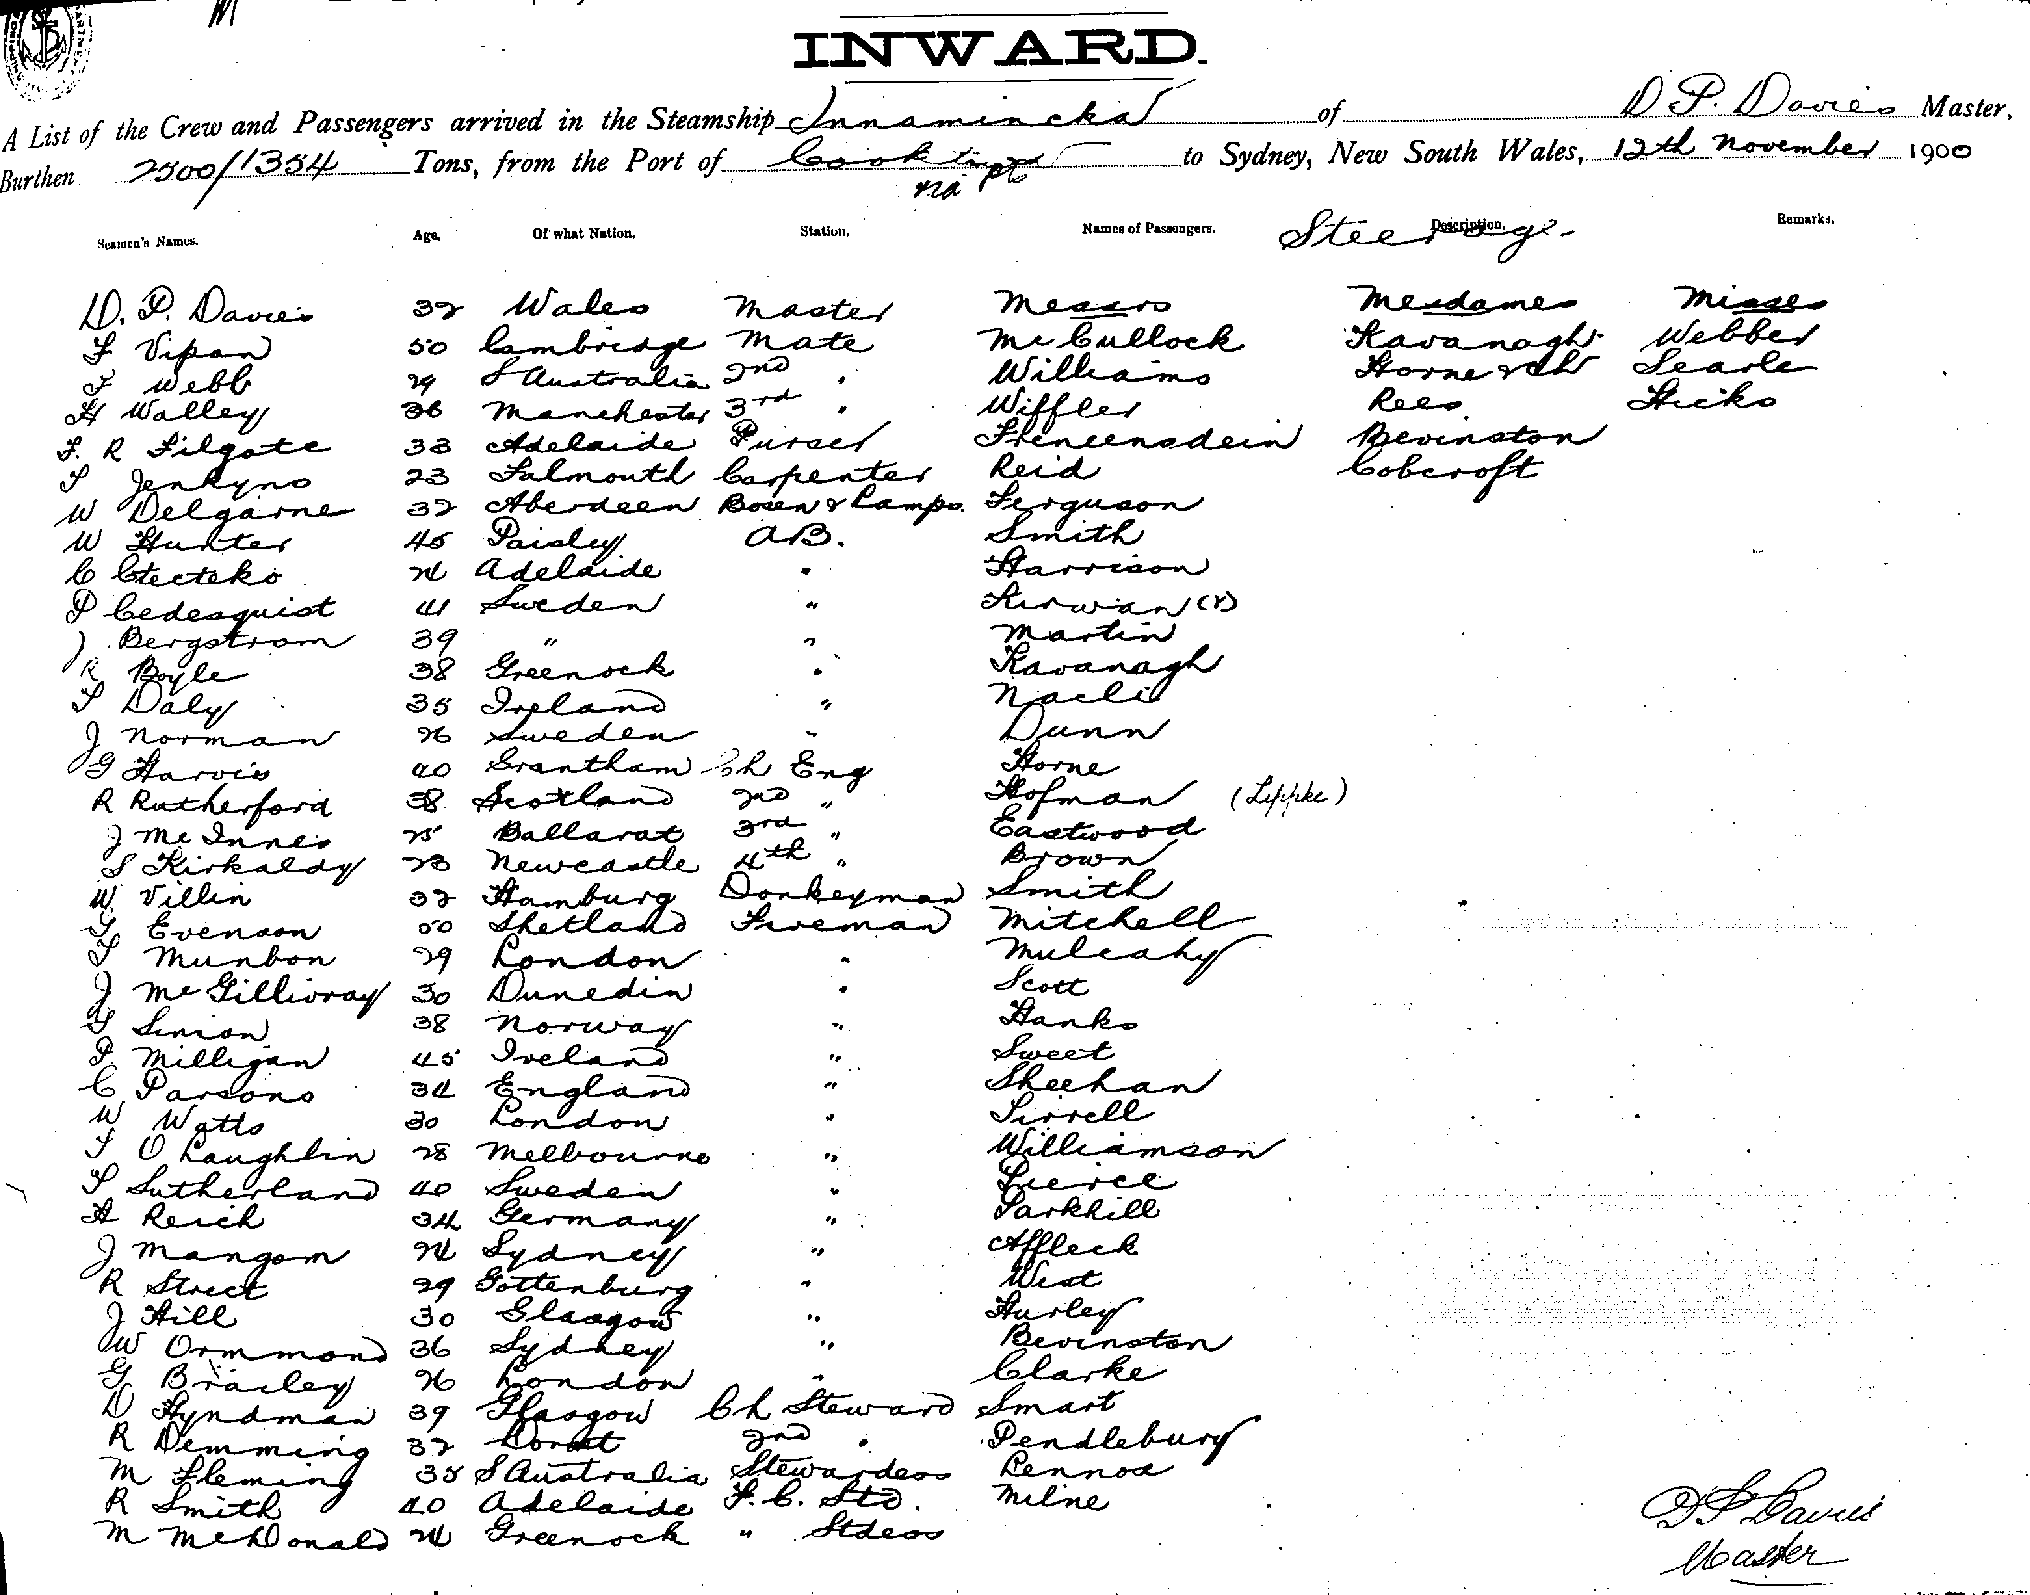 INWARD.
A List of the Crew and Passengers arrived in the Steamship Innamincka of D P. Davies Master,
Burthen 2500/1354 Tons, from the Port of Cooktown to Sydney, New South Wales, 12th November 1900
Seamen's Names. Age. Of what Nation. Station. Names of Passengers. Description. Remarks.
Steerage
D. P. Davies 32 Wales Master Messrs Mesdames Misses
F Vipan 50 Cambridge Mate McCullock Kavanagh Webber
F Webb 29 S Australia 2nd " Williams Horne & ch Searle
H Walley 36 Manchester 3rd " Wiffler Rees Hicks
F. R Filgate 33 Adelaide Purser Bevinston
Jenkyns 23 Falmouth Carpenter Reid Cobcroft
W Delgarne 32 Aberdeen Bosen & Lamps. Ferguson
W Hunter 45 Paisley AB. Smith
C 24 Adelaide " Harrison
P Cedesquist 41 Sweden " Kirwan
J Bergstrom 39 " " Martin
R Boyle 38 Greenock " Kavanagh
Daly 35 Ireland "
J Norman 26 Sweden " Dunn
G Harvie 40 Grantham Ch Eng Horne
R Rutherford 38 Scotland 2nd " Hofman (Lippke)
J McInnes 25 Ballarat 3rd " Eastwood
S Kirkaldy 23 Newcastle 4th " Brown
W Villin 32 Hamburg Donkeyman Smith
G Evenson 50 Shetland Fireman Mitchell
Munbon 29 London " Mulcahy
J McGillivray 30 Dunedin " Scott
Simon 38 Norway " Hanks
P. Milligan 45 Ireland " Sweet
C Parsons 34 England " Sheehan
W Watts 30 London " Sirrell
O Laughlin 28 Melbourne " Williamson
Sutherland 40 Sweden " Pierce
H Reich 34 Germany " Parkhill
J Mangom 24 Sydney " Affleck
R Street 29 Gottenburg " West
J Hill 30 Glasgow " Hurley
W Ormmond 36 Sydney " Bevinston
G Brailey 26 London " Clarke
D Hyndman 39 Glasgow Ch Steward Smart
R Demming 32 Dorset 2nd " Pendlebury
M Fleming 35 S Australia Stewardess Lennox
R Smith 40 Adelaide F. C. Std. Milne
M McDonald 24 Greenock " Stdess
D P Davies
Master